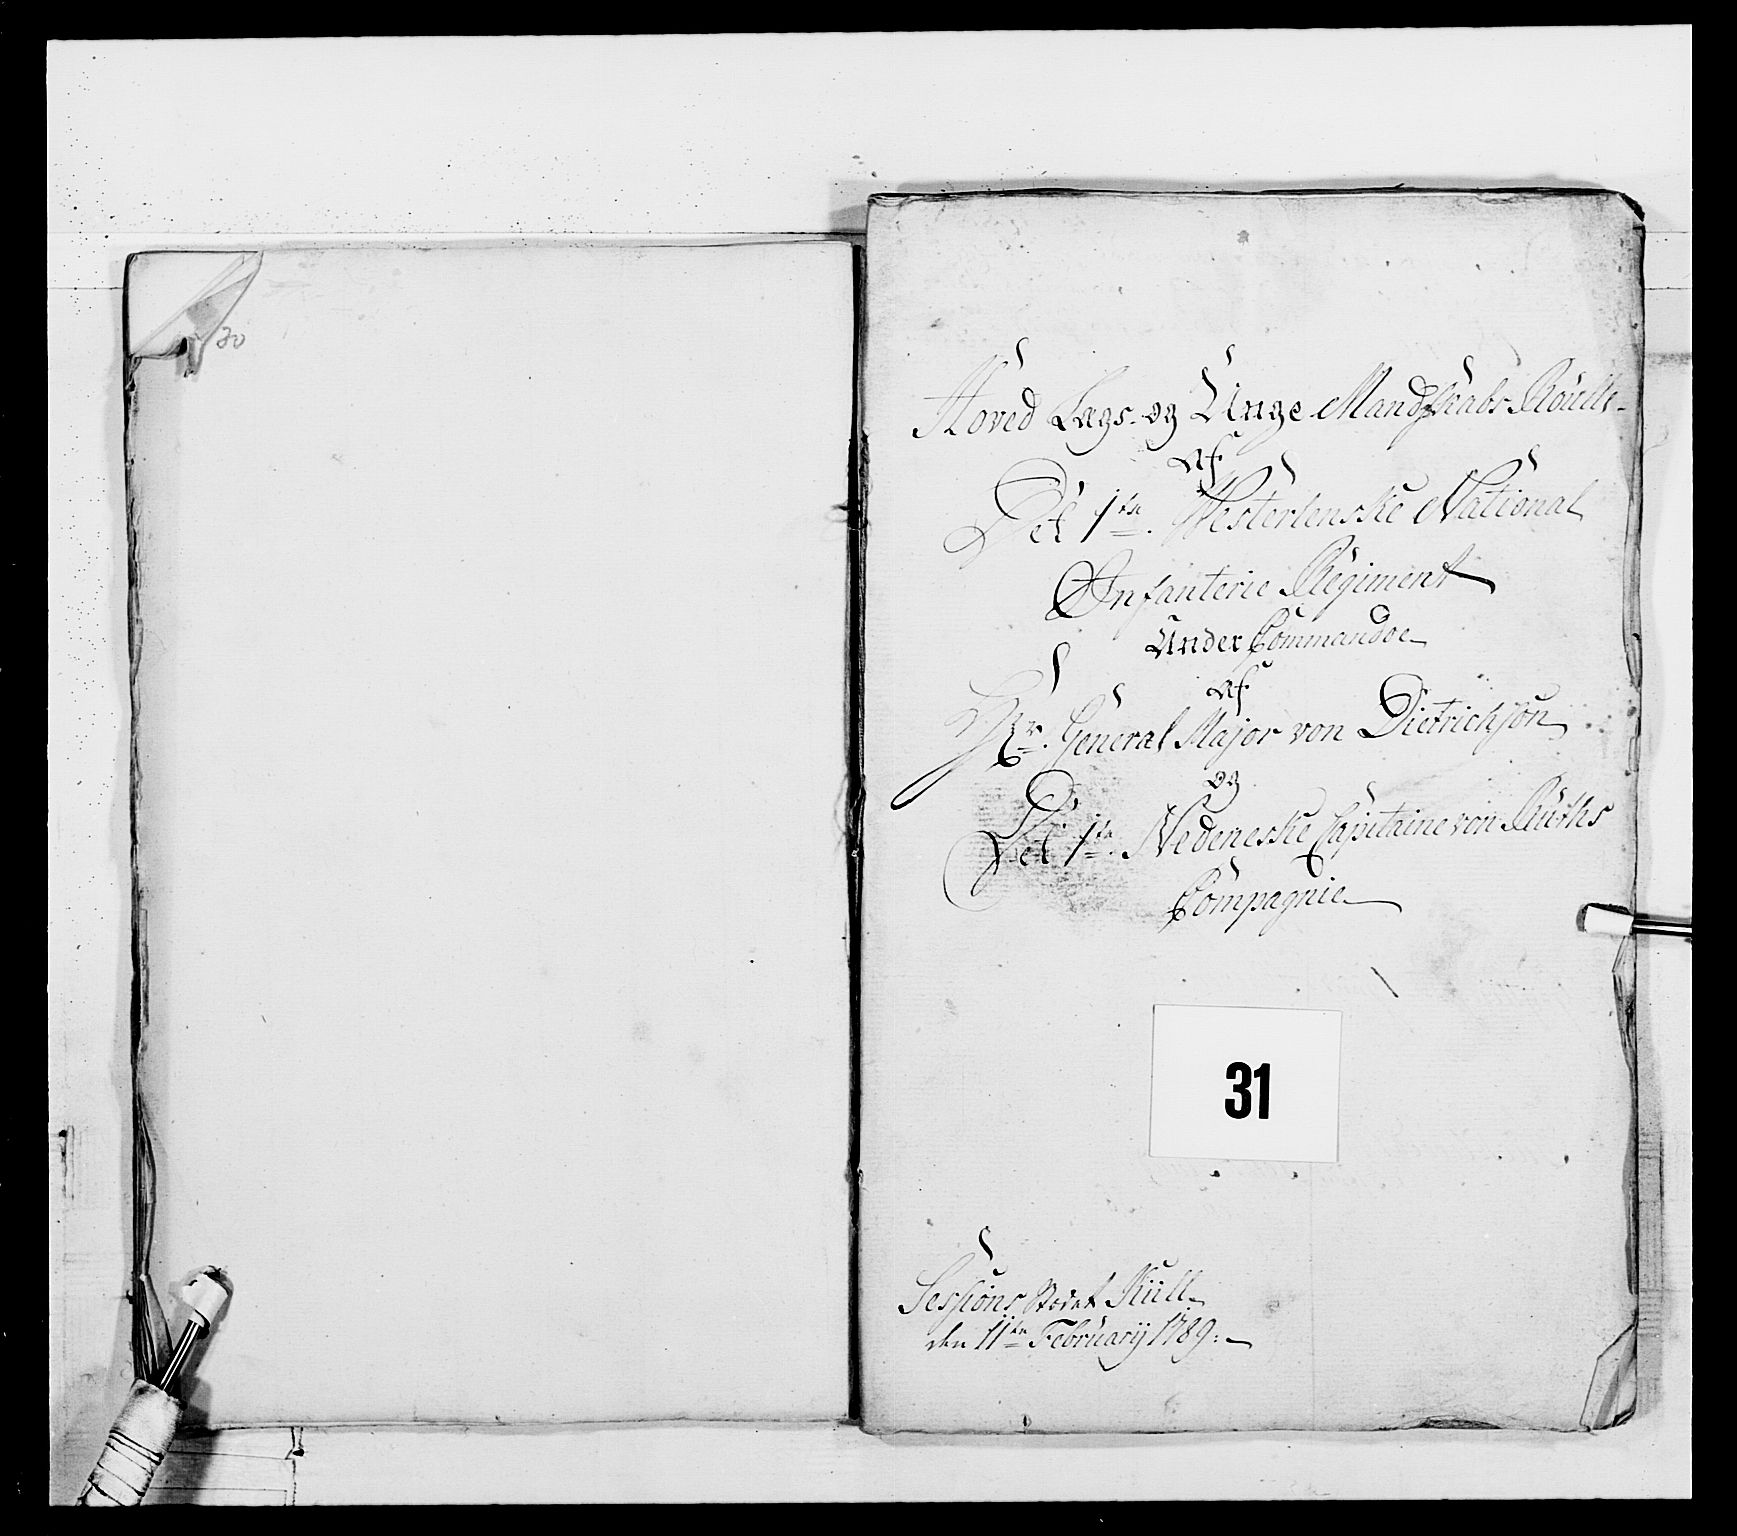 30
Hoved Lægs- og Unge Mandskabs Roulle
Af
Det 1te. Westerlenske National
Infanterie Regiment
Under Commandoe
Af
Hr. General Major von Dietrichson
og
Det 1te. Nedeneske Capitaine von Ruths
Compagnie
31
Sessions Stædet Kull
den 11te February 1789.